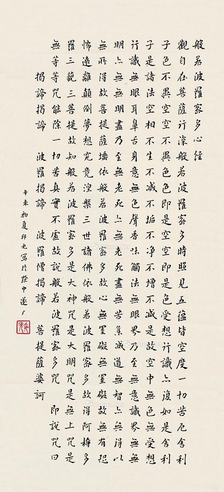 般若波羅蜜多心經
觀自在菩薩行深般若波羅蜜多時照見五蘊皆空度一切苦厄舍利
子色不異空空不異色色即是空空即是色受想行識亦復如是舍利
子是諸法空相不生不滅不垢不淨不增不減是故空中無色無受想
行識無眼耳鼻舌身意無色聲香味觸法無眼界乃至無意識界無無
明亦無無明盡乃至無老死亦無老死盡無苦集滅道無智亦無得以
無所得故菩提薩埵依般若波羅蜜多故心無罣礙無罣礙故無有恐
怖遠離顛倒夢想究竟涅槃三世諸佛依般若波羅蜜多故得阿耨多
羅三藐三菩提故知般若波羅蜜多是大神咒是大明咒是無上咒是
無等等咒能除一切苦真實不虛故說般若波羅蜜多咒即說咒曰
揭諦揭諦 波羅揭諦 波羅僧揭諦 菩提薩婆訶
辛未初夏